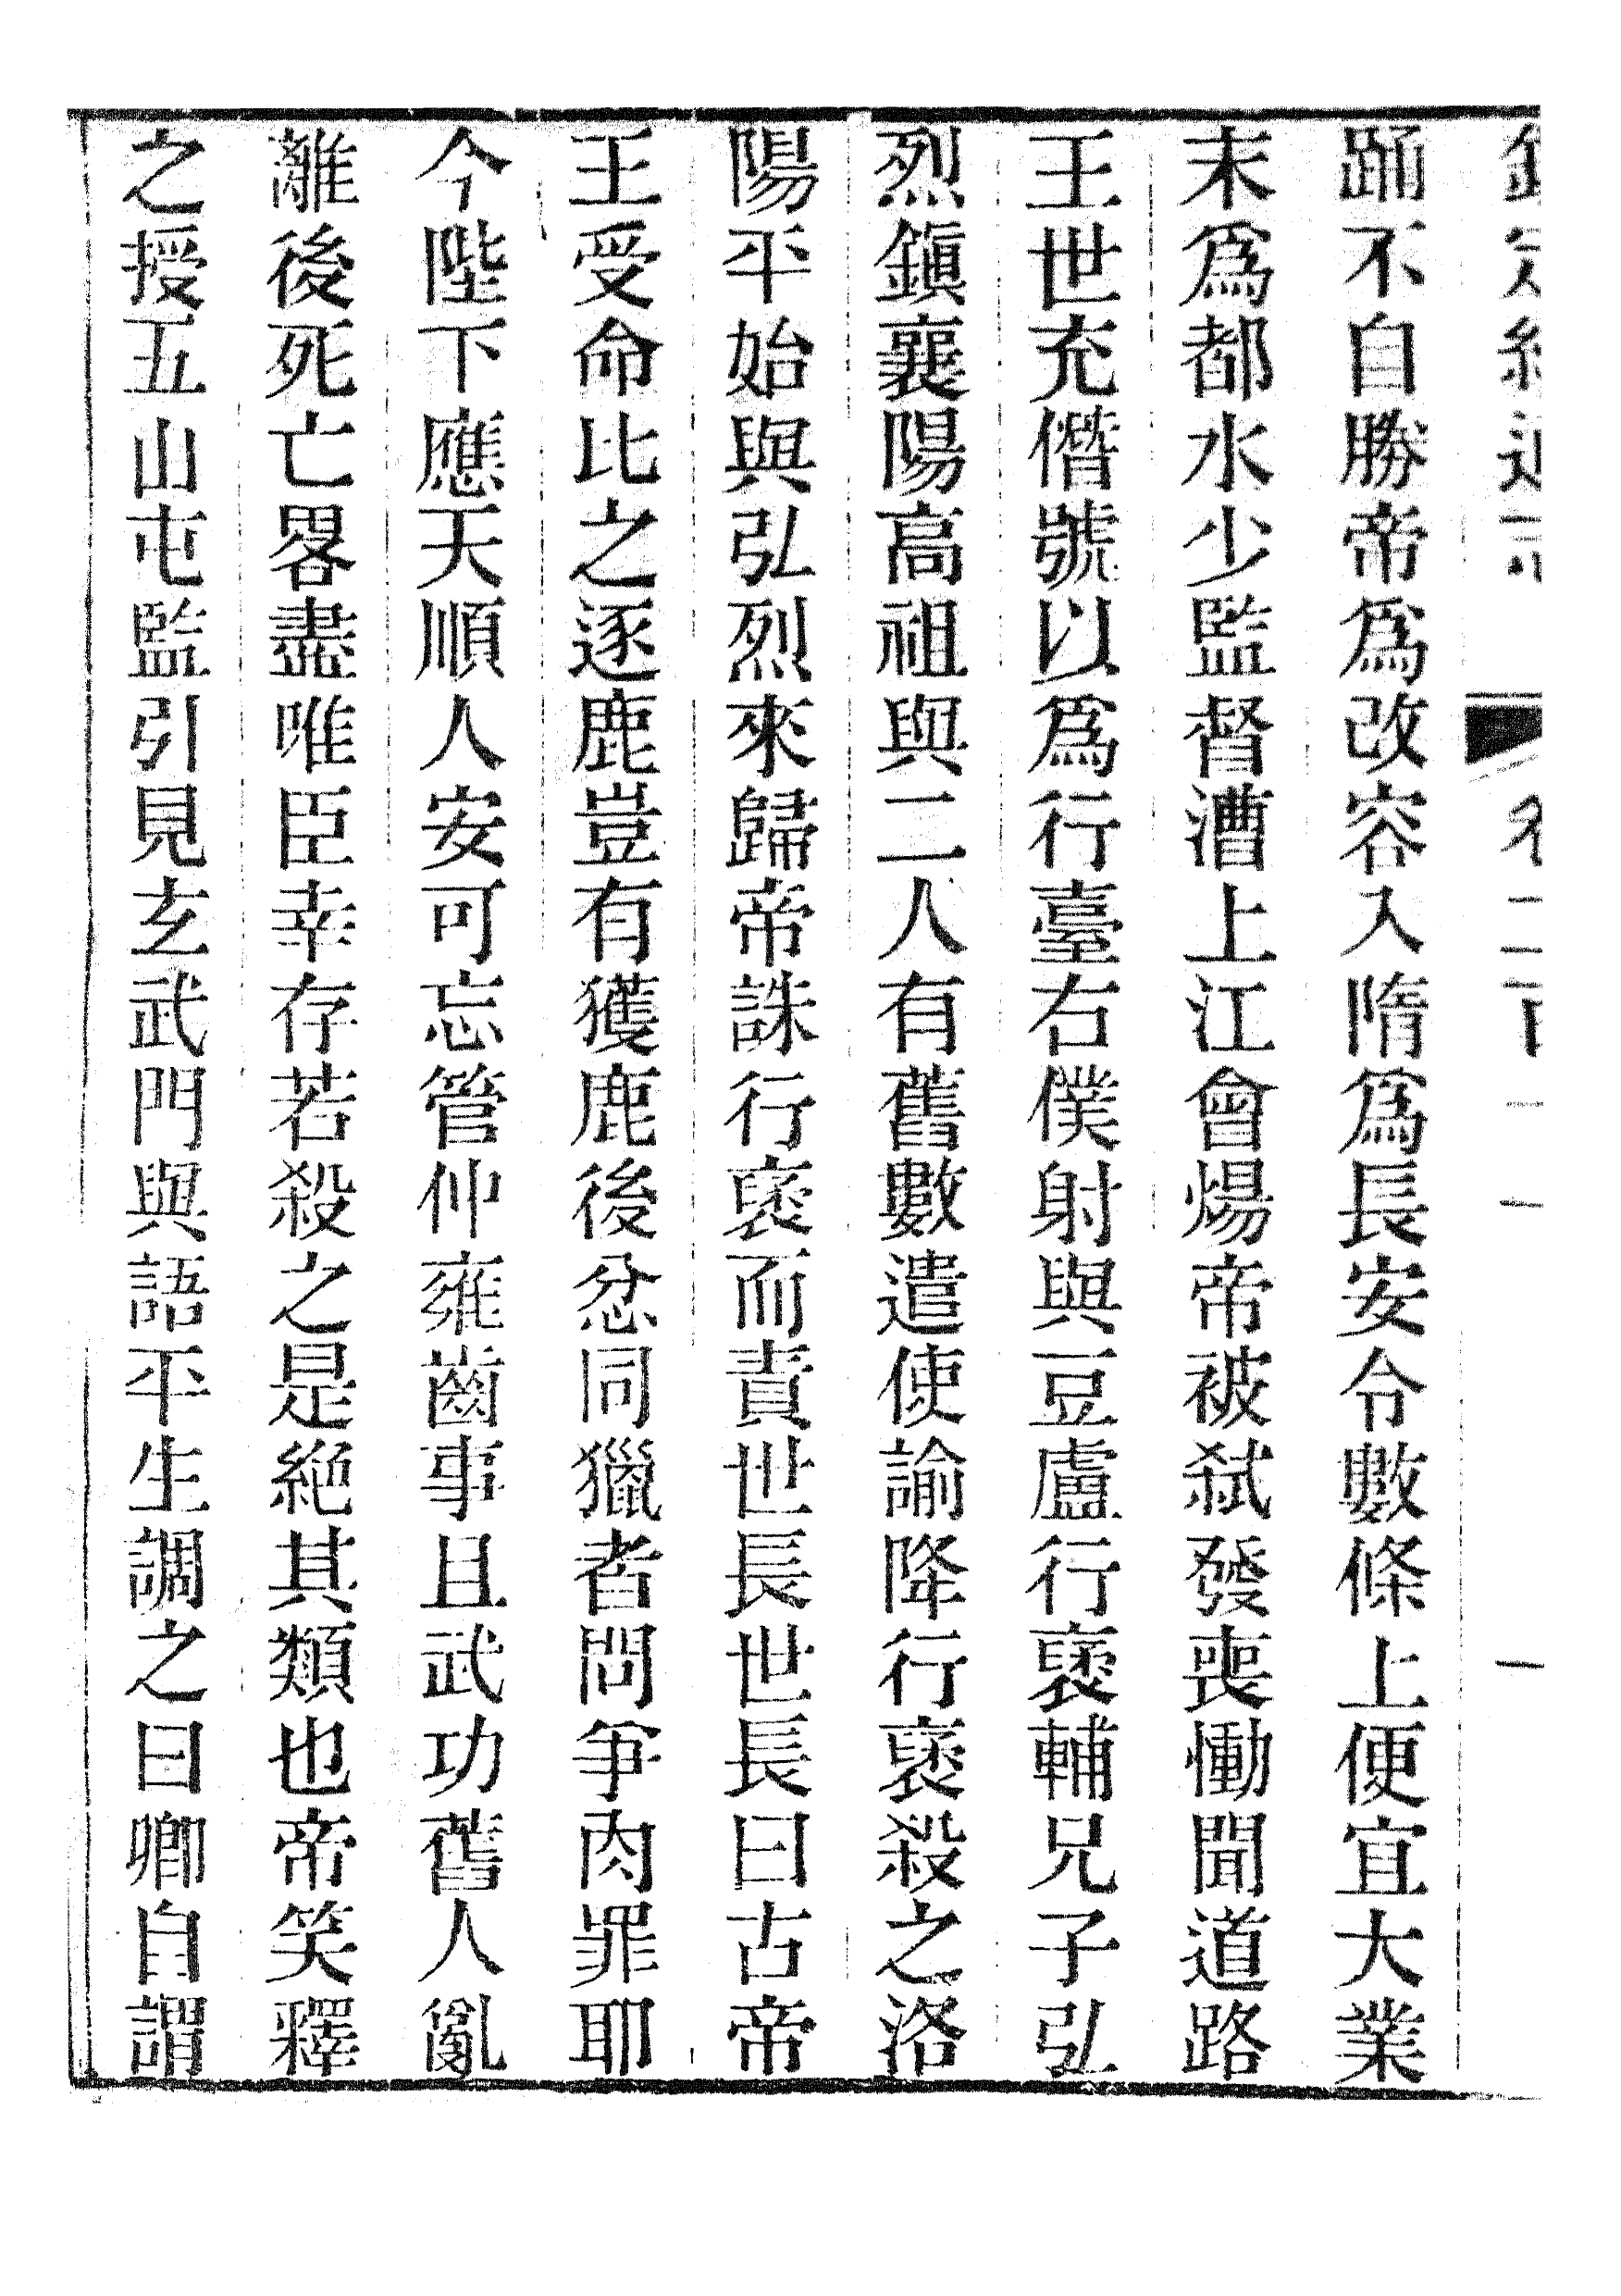 踊不自勝帝爲改容入隋爲長安令數條上便宜大業
末爲都水少監督漕上江會煬帝被弑發喪慟聞道路
王世充僭號以爲行臺右僕射與豆盧行褒輔兄子弘
烈鎮襄陽高祖與二人有舊數遣使諭降行褒殺之洛
陽平始與弘烈來歸帝誅行褒而責世長世長曰古帝
王受命比之逐鹿豈有獲鹿後忿同獵者問爭肉罪耶
今陛下應天順人安可忘管仲雍齒事且武功舊人亂
離後死亡畧盡唯臣幸存若殺之是絕其類也帝笑釋
之授五山屯監引見玄武門與語平生調之曰卿自謂